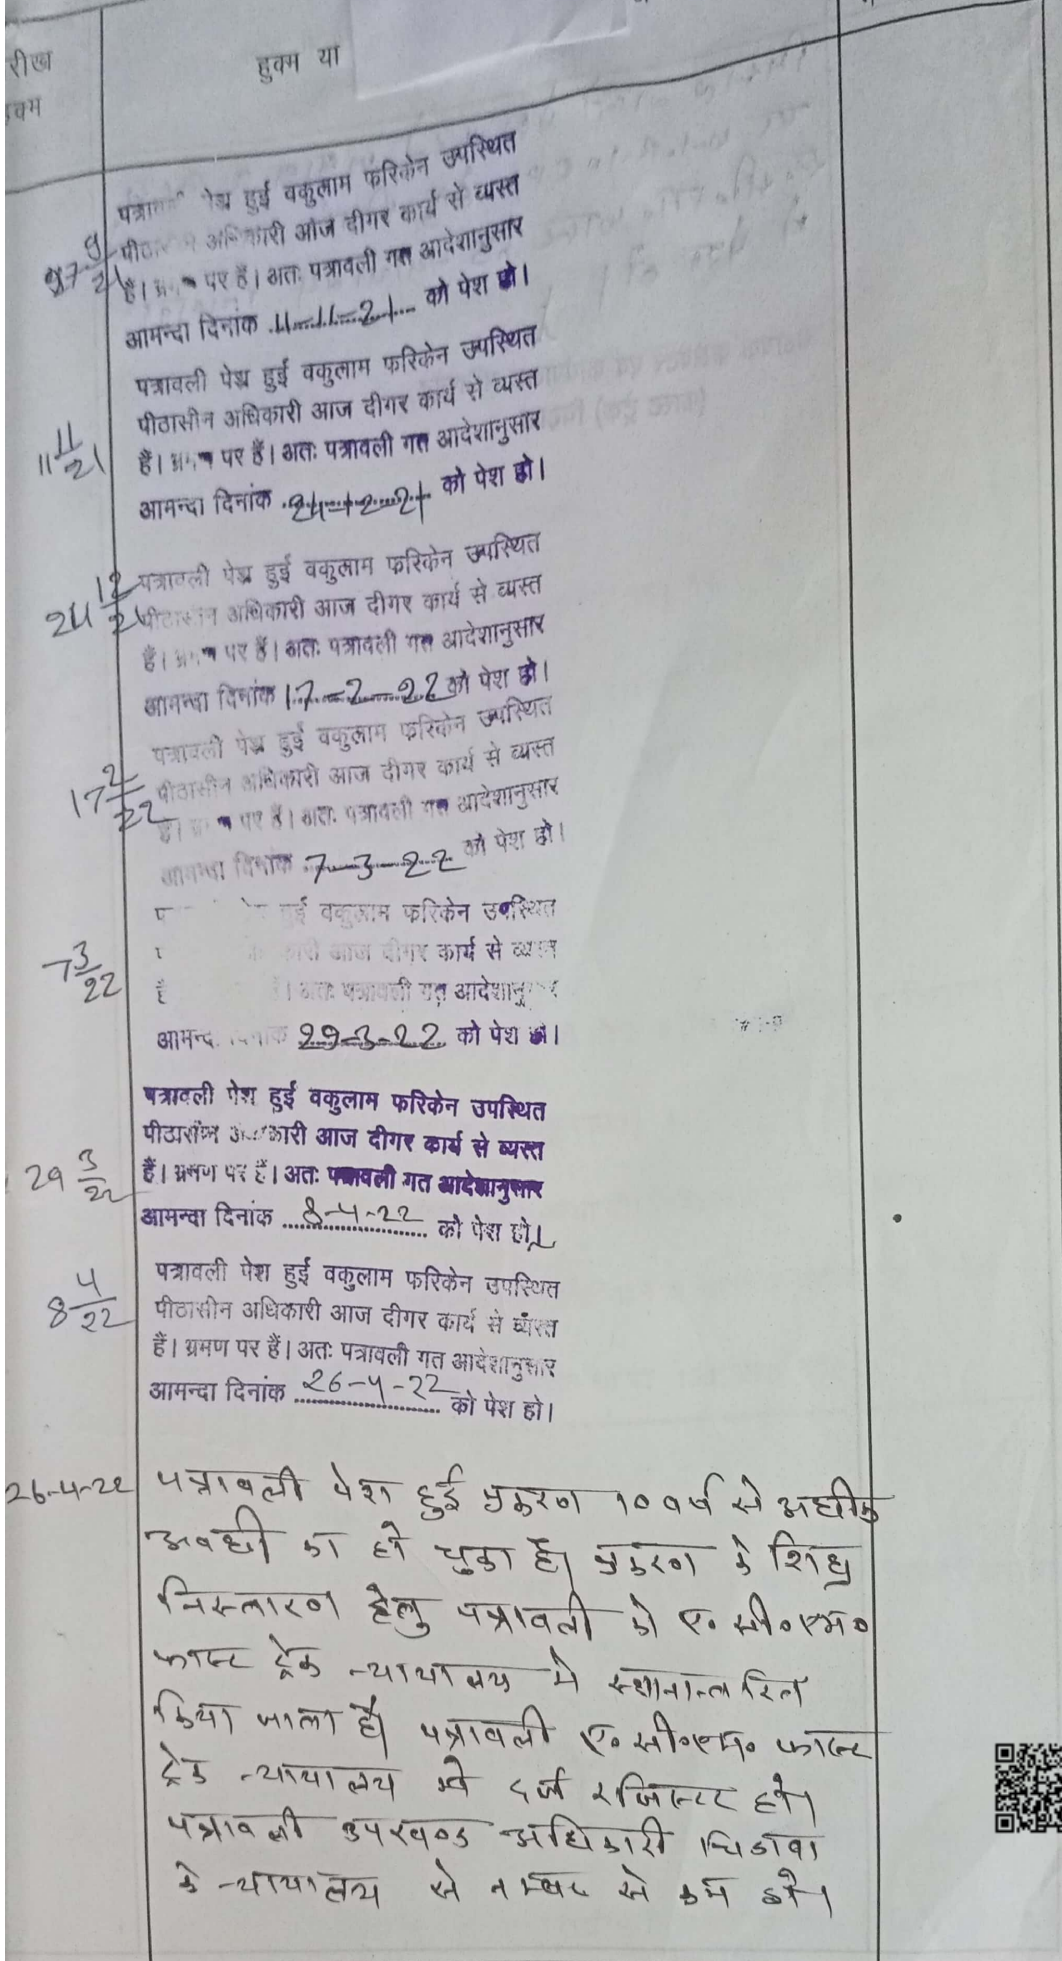 रीख
हुक्म या
क्म
पेश हुई वकुलाम फरिकेन उपस्थित
अधिकारी आज दीगर कार्य से व्यस्त
27 9/21
है। पर हैं। अतः पत्रावली गत आदेशानुसार
आमन्दा दिनांक 11-11-21 को पेश हो।
पत्रावली पेश हुई वकुलाम फरिकेन उपस्थित
पीठासीन अधिकारी आज दीगर कार्य से व्यस्त
11 11/21
हैं। पर हैं। अतः पत्रावली गत आदेशानुसार
आमन्दा दिनांक 24-12-21 को पेश हो।
24 12/21
पत्रावली पेश हुई वकुलाम फरिकेन उपस्थित
पीठासीन अधिकारी आज दीगर कार्य से व्यस्त
हैं। पर हैं। अतः पत्रावली गत आदेशानुसार
आमन्दा दिनांक 17-2-22 को पेश हो।
पत्रावली पेश हुई वकुलाम फरिकेन उपस्थित
17 2/22
पीठासीन अधिकारी आज दीगर कार्य से व्यस्त
है। पर हैं। अतः पत्रावली गत आदेशानुसार
आमन्दा दिनांक 7-3-22 को पेश हो।
हुई वकुलाम फरिकेन उपस्थित
7 3/22
कारी आज दीगर कार्य से व्यस्त
है । अतः पत्रावली गत आदेशानुसार
आमन्दा दिनांक 29-3-22 को पेश हो।
पत्रावली पेश हुई वकुलाम फरिकेन उपस्थित
पीठासीन अधिकारी आज दीगर कार्य से व्यस्त
29 3/22
हैं। भ्रमण पर हैं। अतः पत्रावली गत आदेशानुसार
आमन्दा दिनांक 8-4-22 को पेश हो।
पत्रावली पेश हुई वकुलाम फरिकेन उपस्थित
8 4/22
पीठासीन अधिकारी आज दीगर कार्य से व्यस्त
हैं। भ्रमण पर हैं। अतः पत्रावली गत आदेशानुसार
आमन्दा दिनांक 26-4-22 को पेश हो।
26-4-22 पत्रावली पेश हुई प्रकरण 10 वर्ष से अधीक
अवधी का हो चुका है। प्रकरण के शिघ्र
निस्तारण हेतु पत्रावली को ए॰ सी॰ एम॰
फास्ट ट्रेक न्यायालय मे स्थानान्तरित
किया जाता है। पत्रावली ए॰ सी॰ एम॰ फास्ट
ट्रेक न्यायालय मे दर्ज रजिस्टर हो।
पत्रावली उपखण्ड अधिकारी चिडावा
के न्यायालय से नम्बर से कम हो।